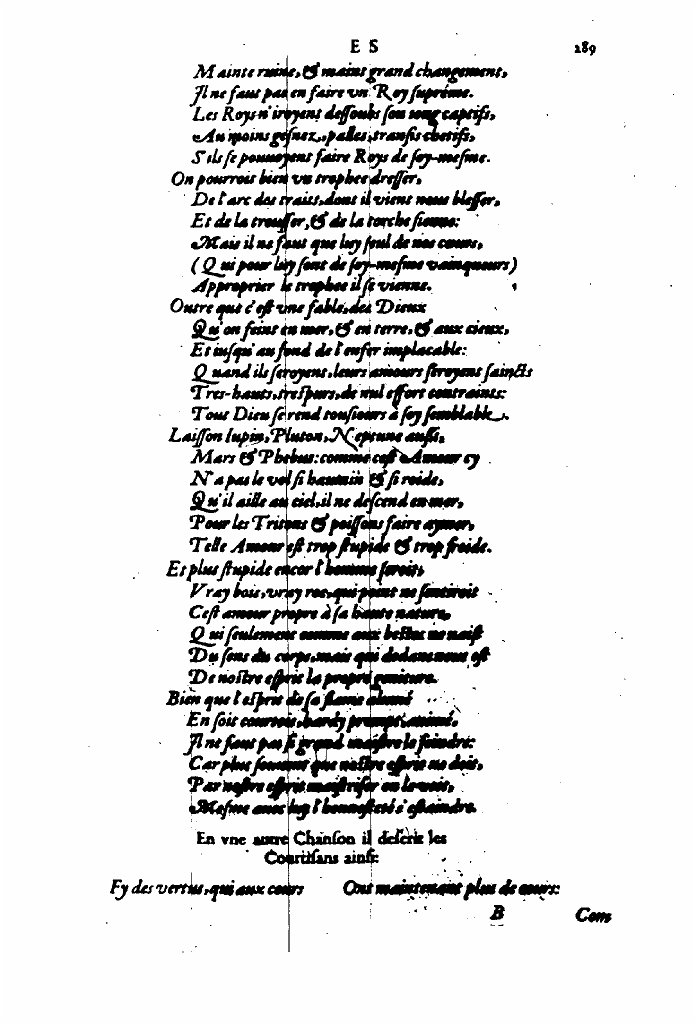 E S 289
Mainte ruine, & maint grand changement,
Il ne faut pas en faire vn Roy supréme.
Les Roys n'iroyent dessoubs son ioug captifs,
Au moins gesnez, palles, transis chetifs,
S'ils se pouuoyent faire Roys de soy-mesme.
On pourroit bien vn trophee dresser,
De l'arc des traits, dont il vient nous blesser,
Et de la trousse, & de la torche sienne:
Mais il ne faut que luy seul de nos cœurs,
(Qui pour luy sont de soy-mesme vainqueurs)
Approprier le trophee il se vienne.
Outre que c'est vne fable, des Dieux
Qu'on feint en mer, & en terre, & aux cieux,
Et iusqu'au fond de l'enfer implacable:
Quand ils seroyent, leurs amours seroyent saincts
Tres-hauts, trespurs, de nul effort contraints:
Tout Dieu se rend tousiours à soy semblable.
Laisson Iupin, Pluton, Neptune aussi,
Mars & Phebus: comme cest Amour cy
N'a pas le vol si hautain & si roide,
Qu'il aille au ciel, il ne descend en mer,
Pour les Tritons & poissons faire aymer,
Telle Amour est trop stupide & trop froide.
Et plus stupide encor l'homme seroit,
Vray bois, vray roc, qui point ne sentiroit
Cest amour propre à sa haute nature,
Qui seulement comme aux bestes ne naist
Du sens du corps, mais qui dedans nous est
De nostre esprit la propre geniture.
Bien que l'esprit de sa flame alumé
En soit courtois, hardy prompt, animé,
Il ne faut pas si grand maistre le feindre:
Car plus souuent que nostre esprit ne doit,
Par nostre esprit maistriser on le voit,
Mesme auec luy l'honnesteté s'estaindre.
En vne autre Chanson il descrit les
Courtisans ainsi:
Fy des vertus, qui aux cours Ont maintenant plus de cours:
B Com